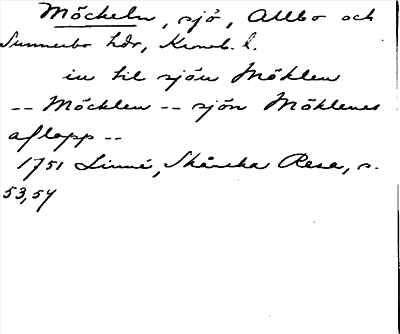 Möckeln, sjö, Allbo och
Sunnerbo hdr, Kronob. l.
in til sjön Möklen
-- Möcklen -- sjön Möklenes
aflopp --
1751 Linné, Skånska Resa, s.
53,54